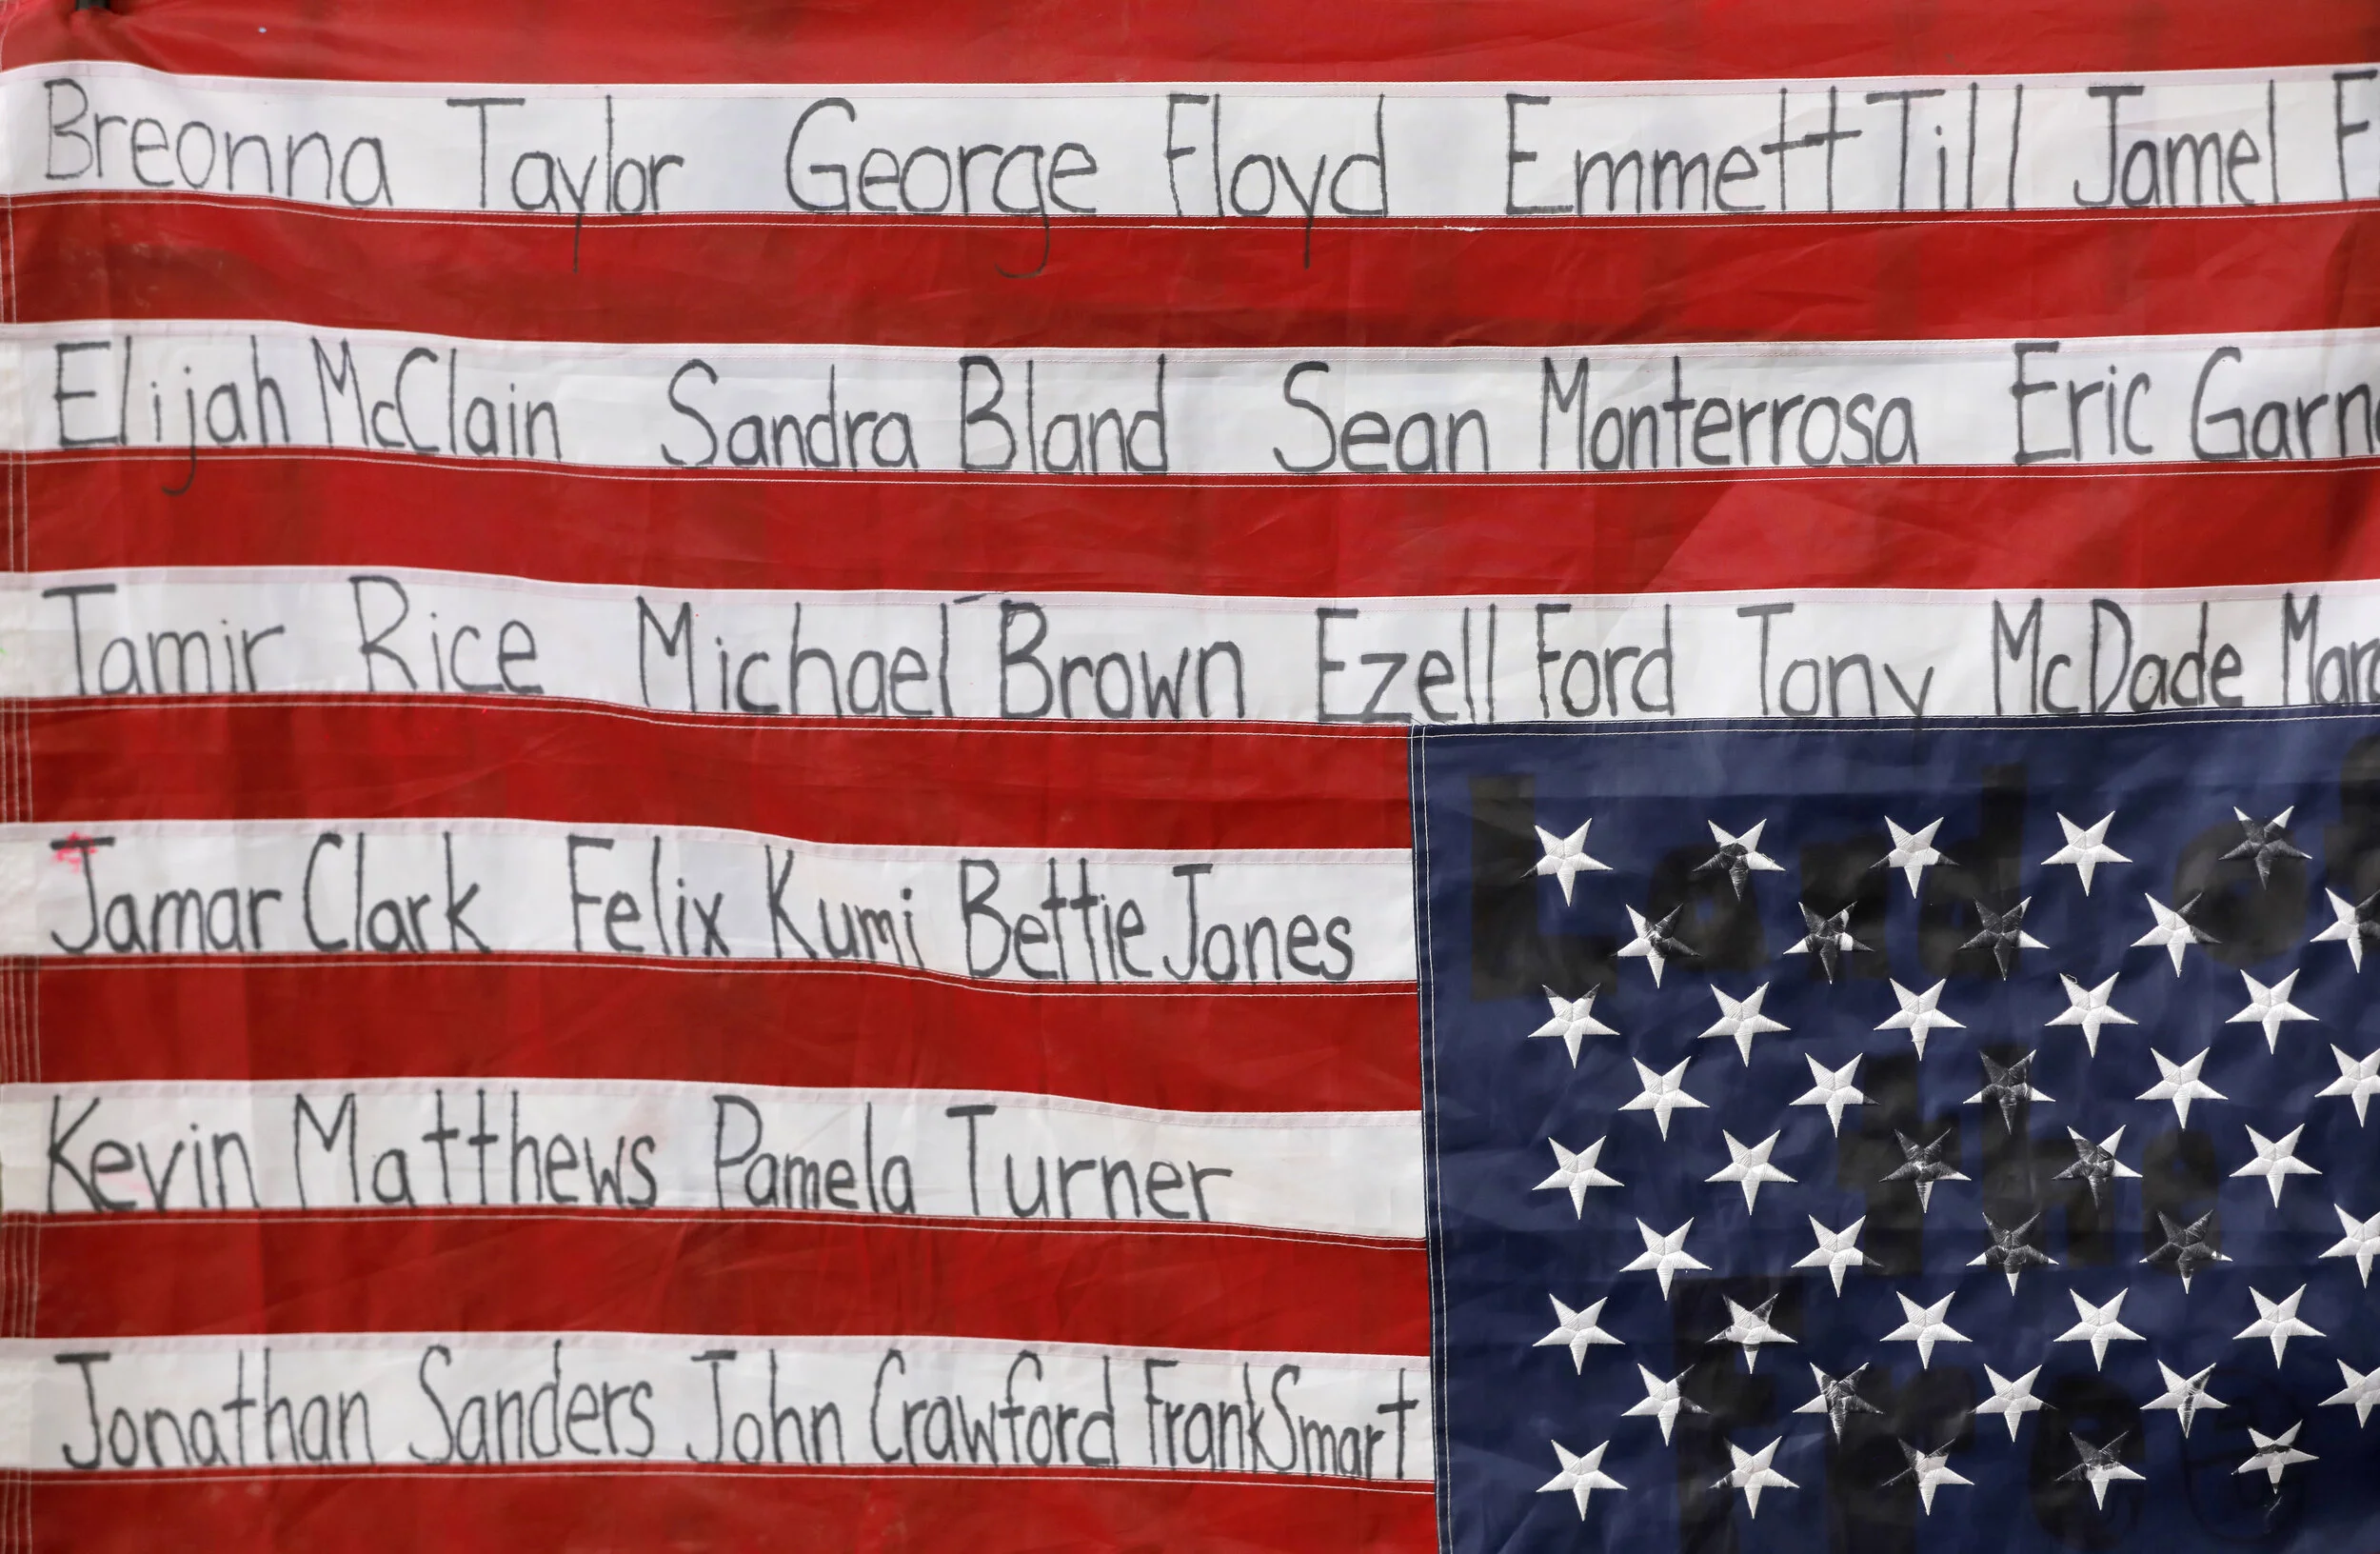 Breonna Taylor George Floyd Emmett Till Jamel
Elijah McClain Sandra Bland Sean Monterrosa Eric
Tamir Rice Michael Brown Ezell Ford Tony McDade
Jamar Clark Felix Kumi Bettie Jones
Kevin Matthews Pamela Turner
Jonathan Sanders John Crawford Frank Smart
Land of
the
free